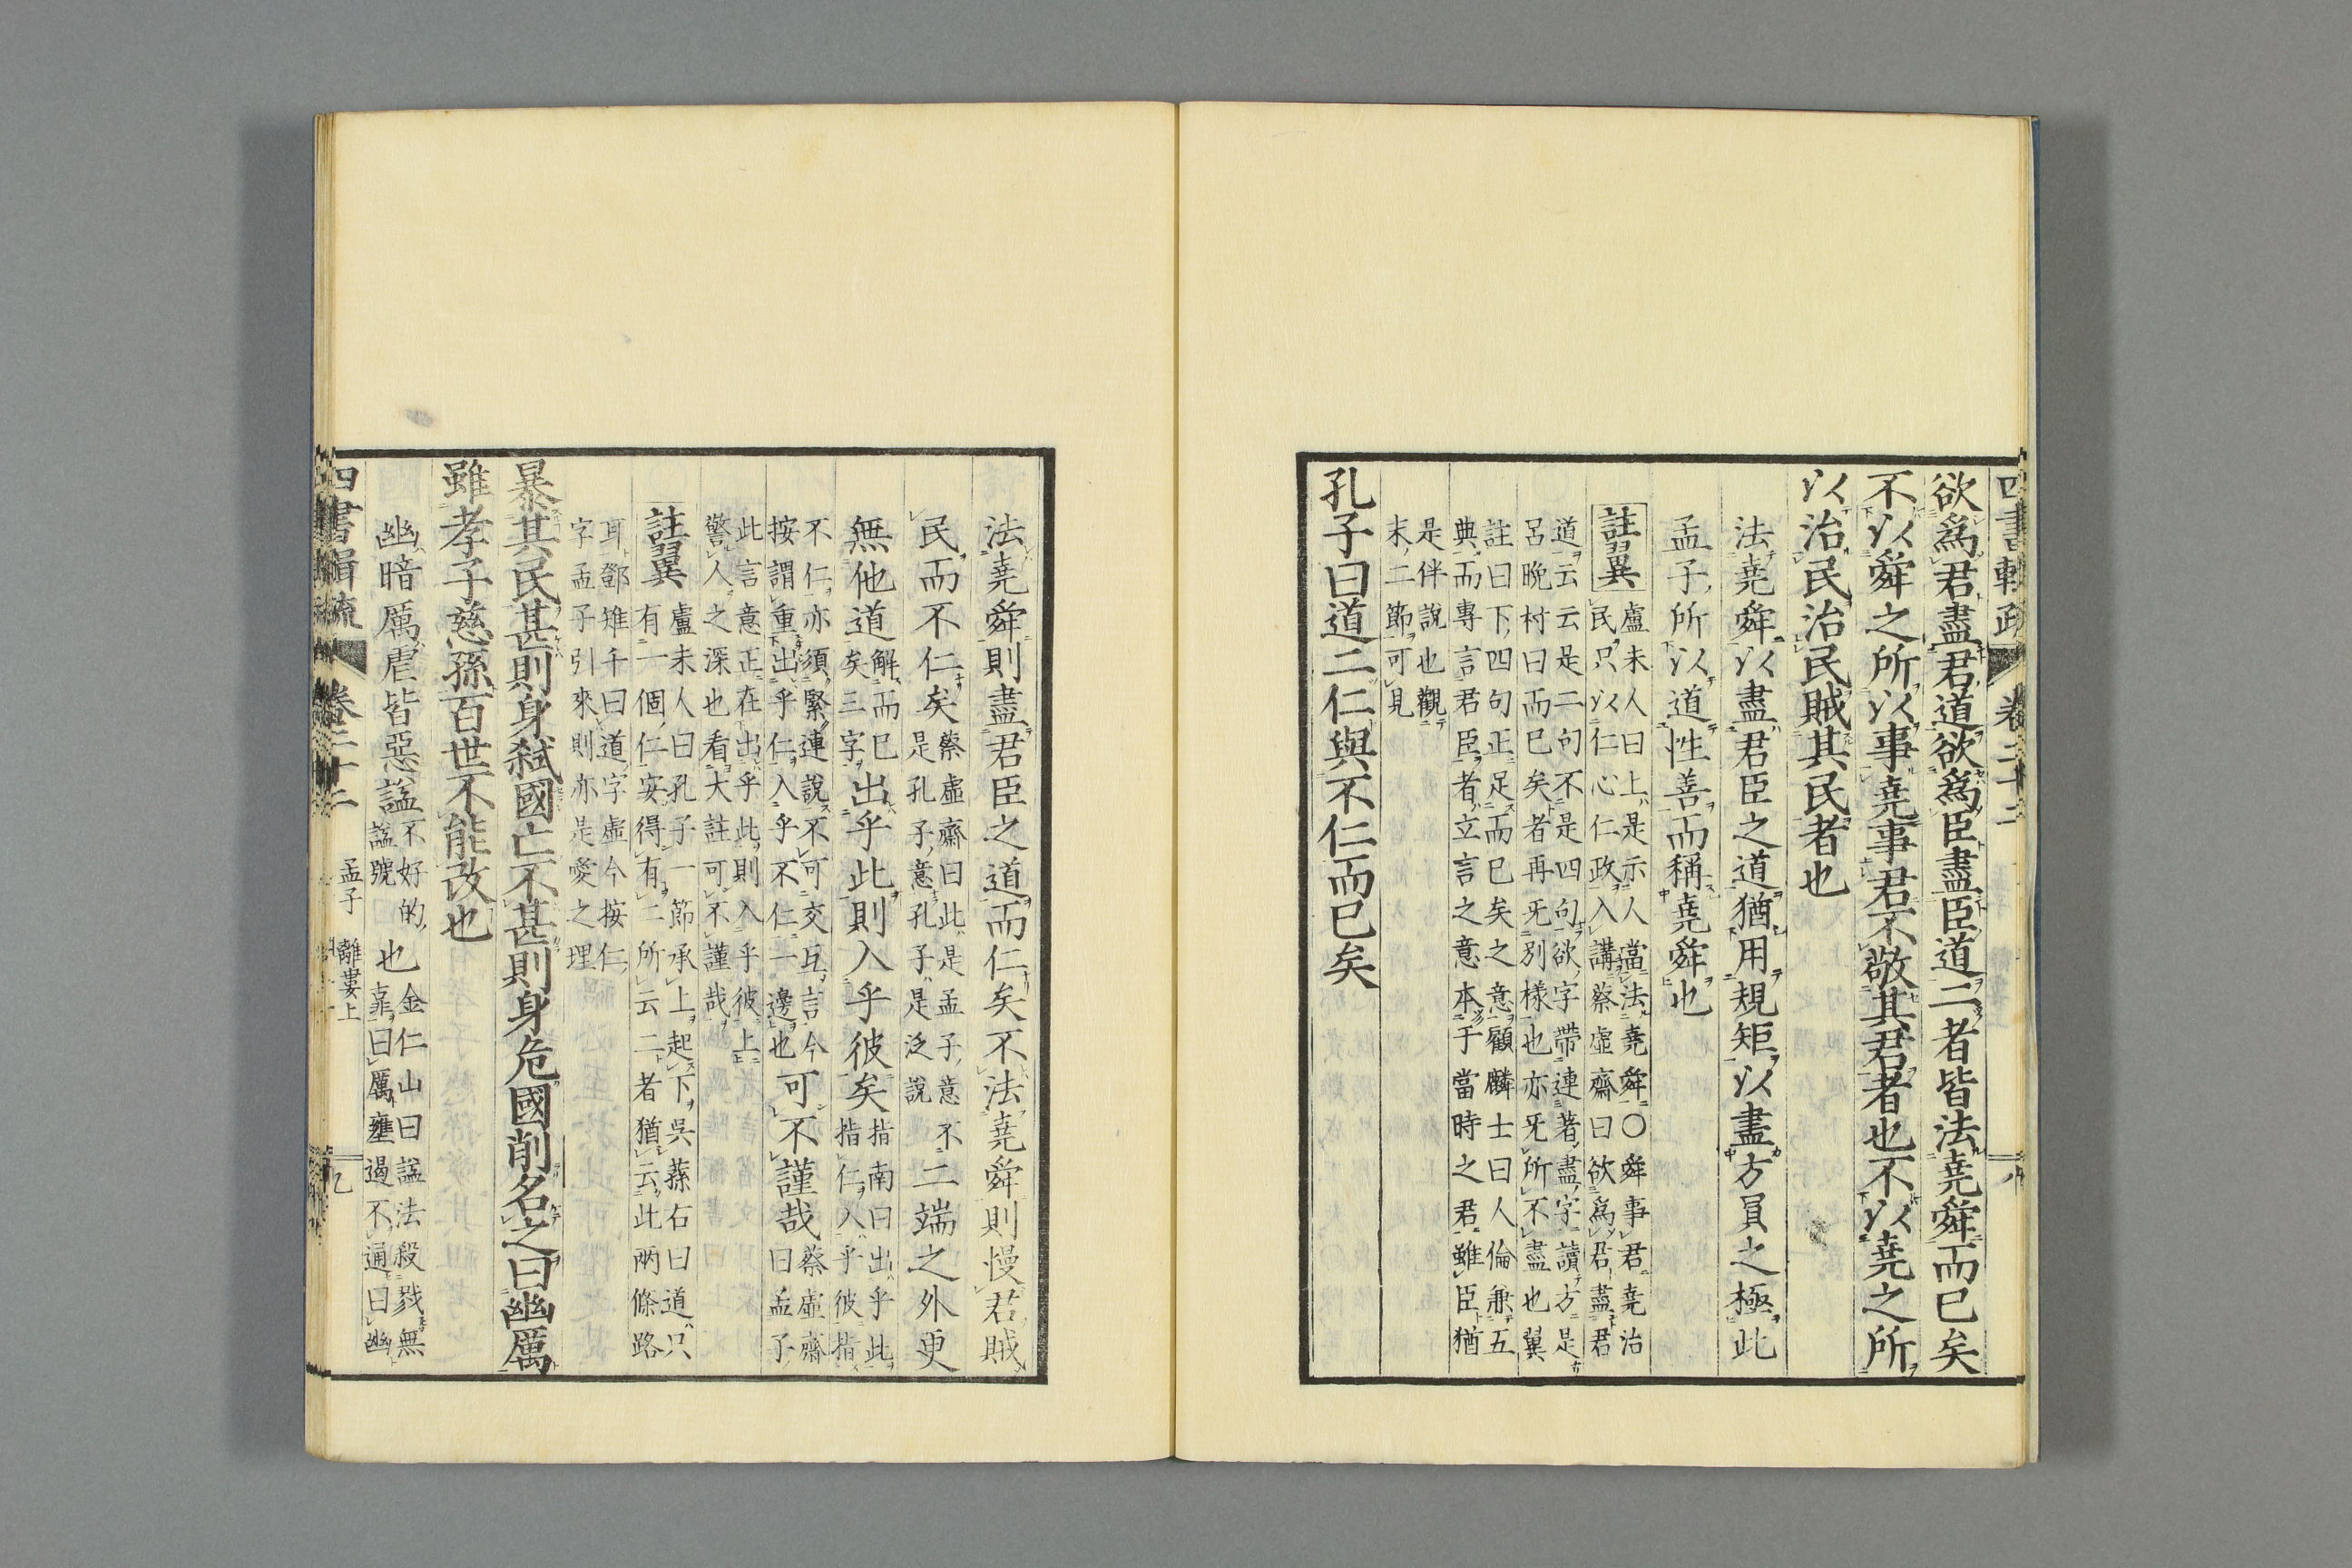 四書輯疏 卷二十二 八
欲爲君盡君道欲爲臣盡臣道二者皆法堯舜而已矣
不以舜之所以事堯事君不敬其君者也不以堯之所
以治民治民賊其民者也
法堯舜以盡君臣之道猶用規矩以盡方員之極此
孟子所以道性善而稱堯舜也
註翼
盧未人曰上是示人當法堯舜○舜事君堯治
民只以仁心仁政入講蔡虛齋曰欲爲君盡君
道云云是二句不是四句欲字帶連著盡字讀方是
呂晚村曰而已矣者再旡別樣也亦旡所不盡也翼
註曰下四句正足而已矣之意顧麟士曰人倫兼五
典而專言君臣者立言之意本于當時之君雖臣猶
是伴說也觀
末二節可見
孔子曰道二仁與不仁而已矣
法堯舜則盡君臣之道而仁矣不法堯舜則慢君賊
民而不仁矣
蔡虛齋曰此是孟子意不
是孔子意孔子是泛說
二端之外更
無他道
解而已
矣三字
出乎此則入乎彼矣
指南曰出乎此指
仁入乎彼指
不仁亦須緊連說不可交互言今
按謂重出乎仁入乎不仁一邊也
可不謹哉
蔡虛齋
曰孟子
此言意正在出乎此則入乎彼上
警人之深也看大註可不謹哉
註翼
盧未人曰孔子一節承上起下吳蓀右曰道只
有一個仁安得有二所云二者猶云此兩條路
耳鄧雉千曰道字虛今按仁
字孟子引來則亦是愛之理
暴其民甚則身弒國亡不甚則身危國削名之曰幽厲
雖孝子慈孫百世不能改也
幽暗厲虐皆惡諡
不好的
諡號
也
金仁山曰諡法殺戮無
辜曰厲壅遏不通曰幽
四書輯疏 卷二十二 孟子 離婁上 九